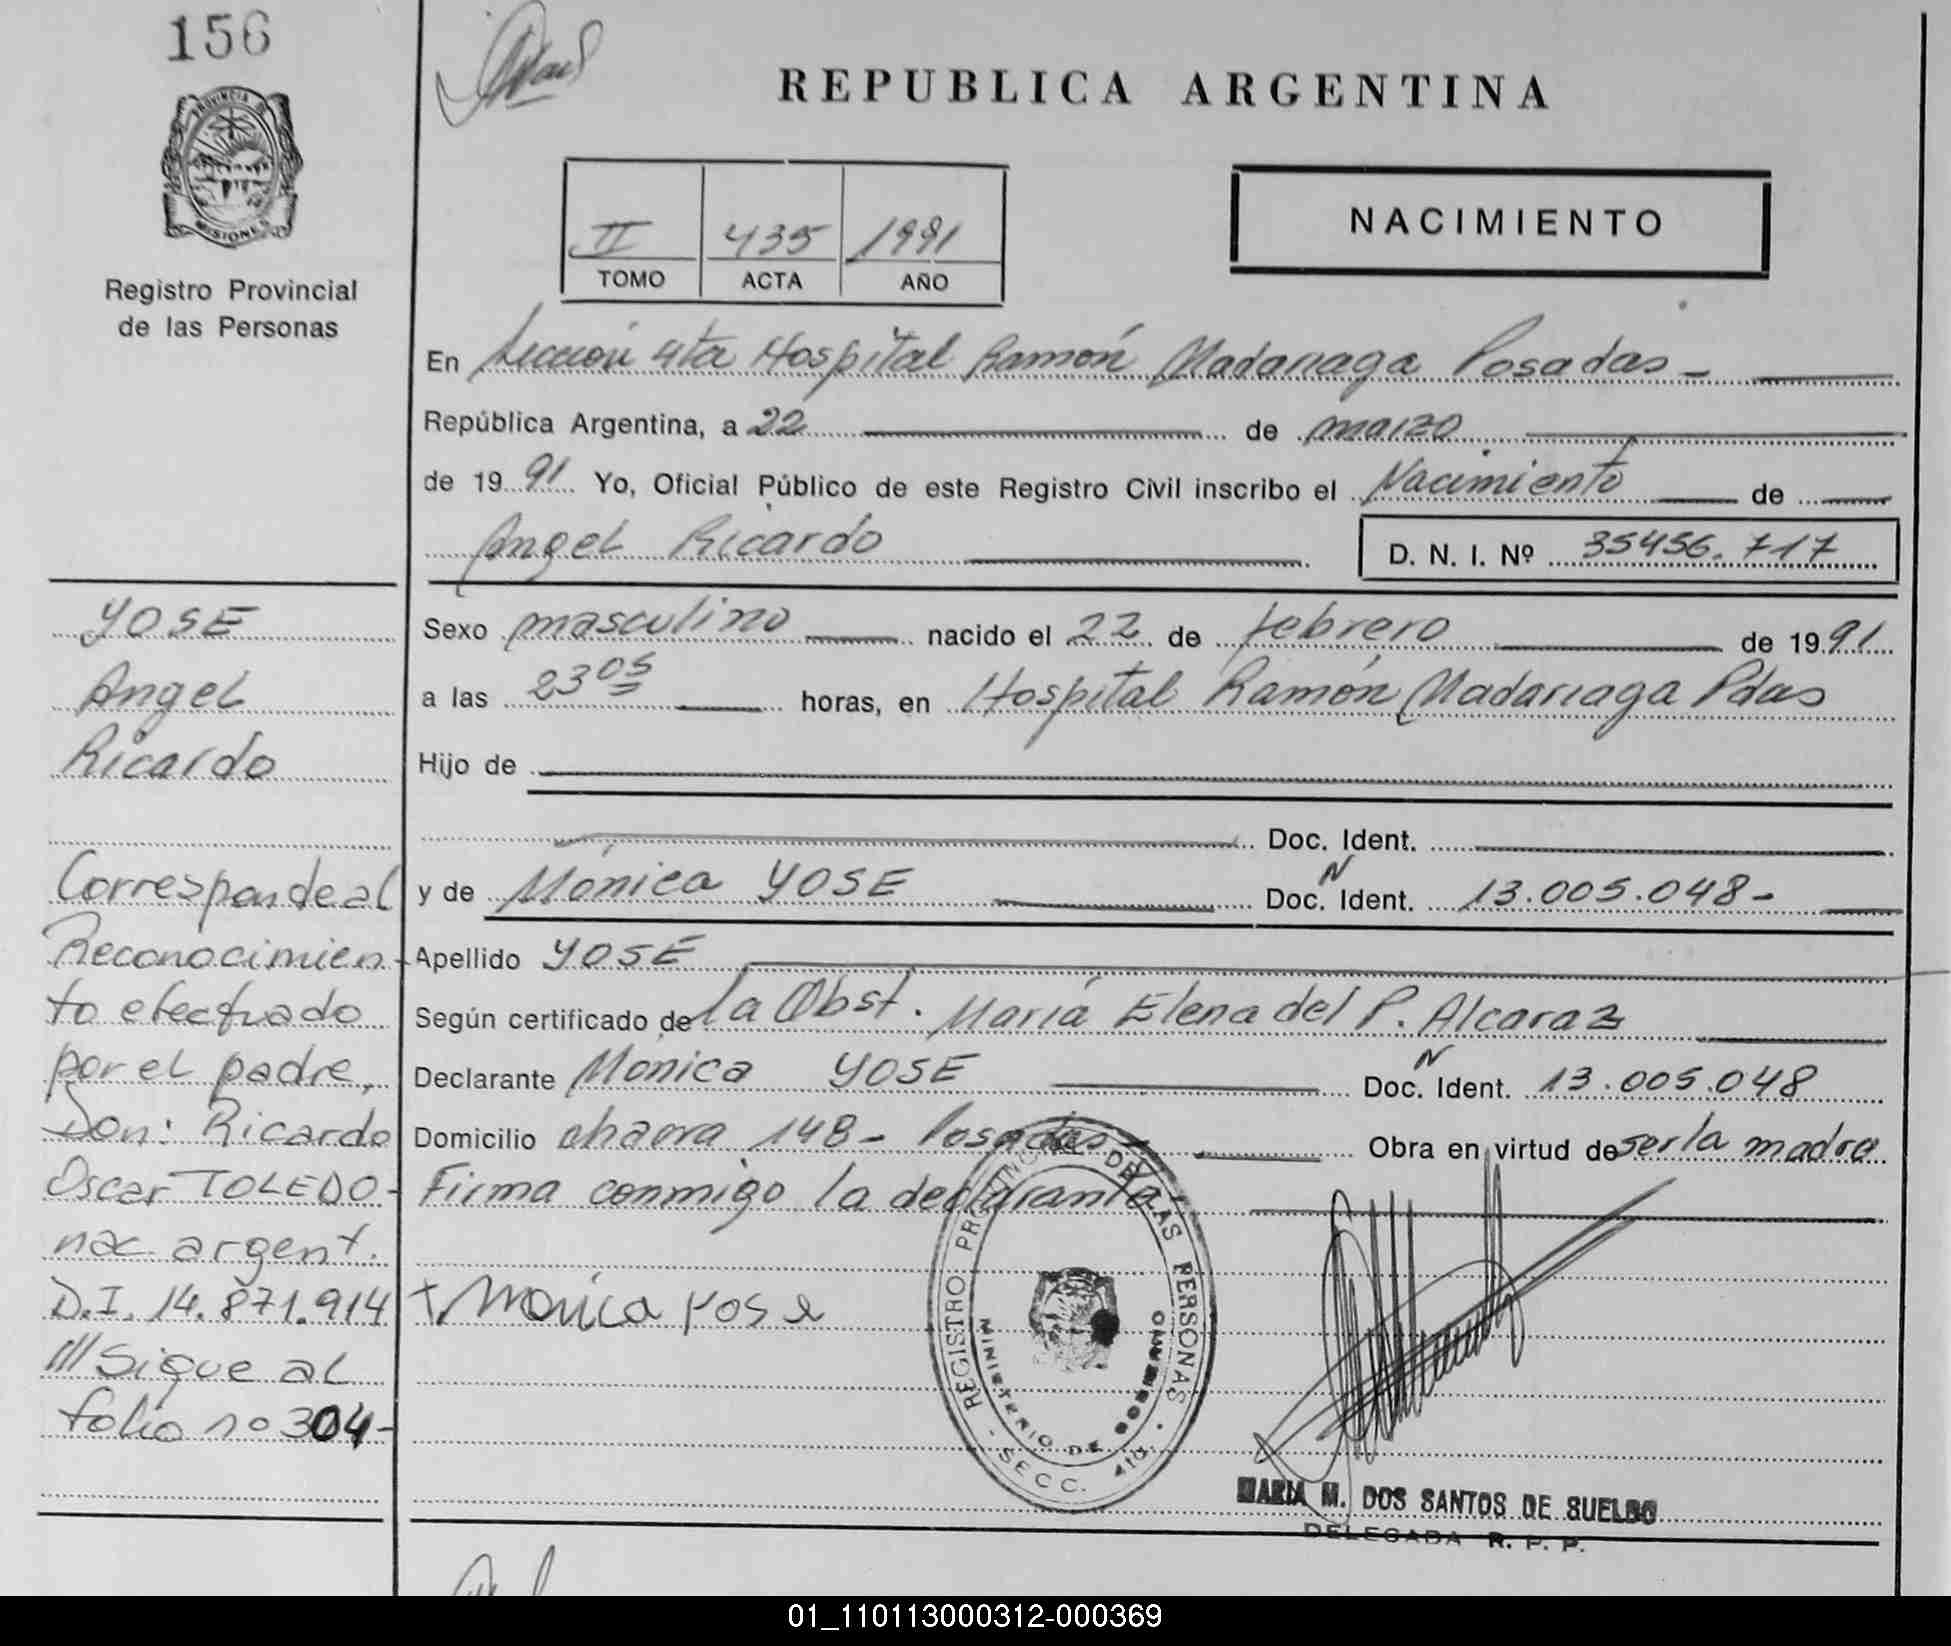 156
PROVINCIA DE
MISIONES
Registro Provincial
de las Personas
REPUBLICA ARGENTINA
II 435 1991
TOMO ACTA AÑO
NACIMIENTO
En Sección 4ta Hospital Ramón Madariaga Posadas -
República Argentina, a 22 de marzo
de 1991 Yo, Oficial Público de este Registro Civil inscribo el Nacimiento de
Angel Ricardo D. N. I. Nº 35456.717
Sexo masculino nacido el 22 de febrero de 1991
a las 23 05 horas, en Hospital Ramón Madariaga Pdas
Hijo de
Doc. Ident.
y de Mónica YOSE Doc. N Ident. 13.005.048-
Apellido YOSE
Según certificado de la Obst. María Elena del P. Alcaraz
Declarante Mónica YOSE Doc. N Ident. 13.005.048
Domicilio chacra 148- Posadas - Obra en virtud de ser la madre
Firma conmigo la declarante
+ Monica Yose
YOSE
Angel
Ricardo
Corresponde al
Reconocimien-
to efectuado
por el padre,
Don: Ricardo
Oscar TOLEDO-
nac. argent.
D.I. 14.871.914
///Sigue al
folio nº 304-
REGISTRO PROVINCIAL DE LAS PERSONAS
MINISTERIO DE GOBIERNO
- SECC. 4ta. -
MARIA M. DOS SANTOS DE SUELDO
DELEGADA R. P. P.
01_110113000312-000369